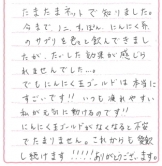 たまたまネットで知りました。
今まで、ニ、すっぽん、にんにく系
のサプリを色々と飲んできまし
たが、たいした効果が感じら
れませんでした…。
でもにんにく玉ゴールドは本当に
すごいです!!いつも疲れやすい
私が元気に動けるのです!!
にんにく玉ゴールドがなくなると不安
でたまりません。これからも愛飲
し続けます!!!!!ありがとうございます